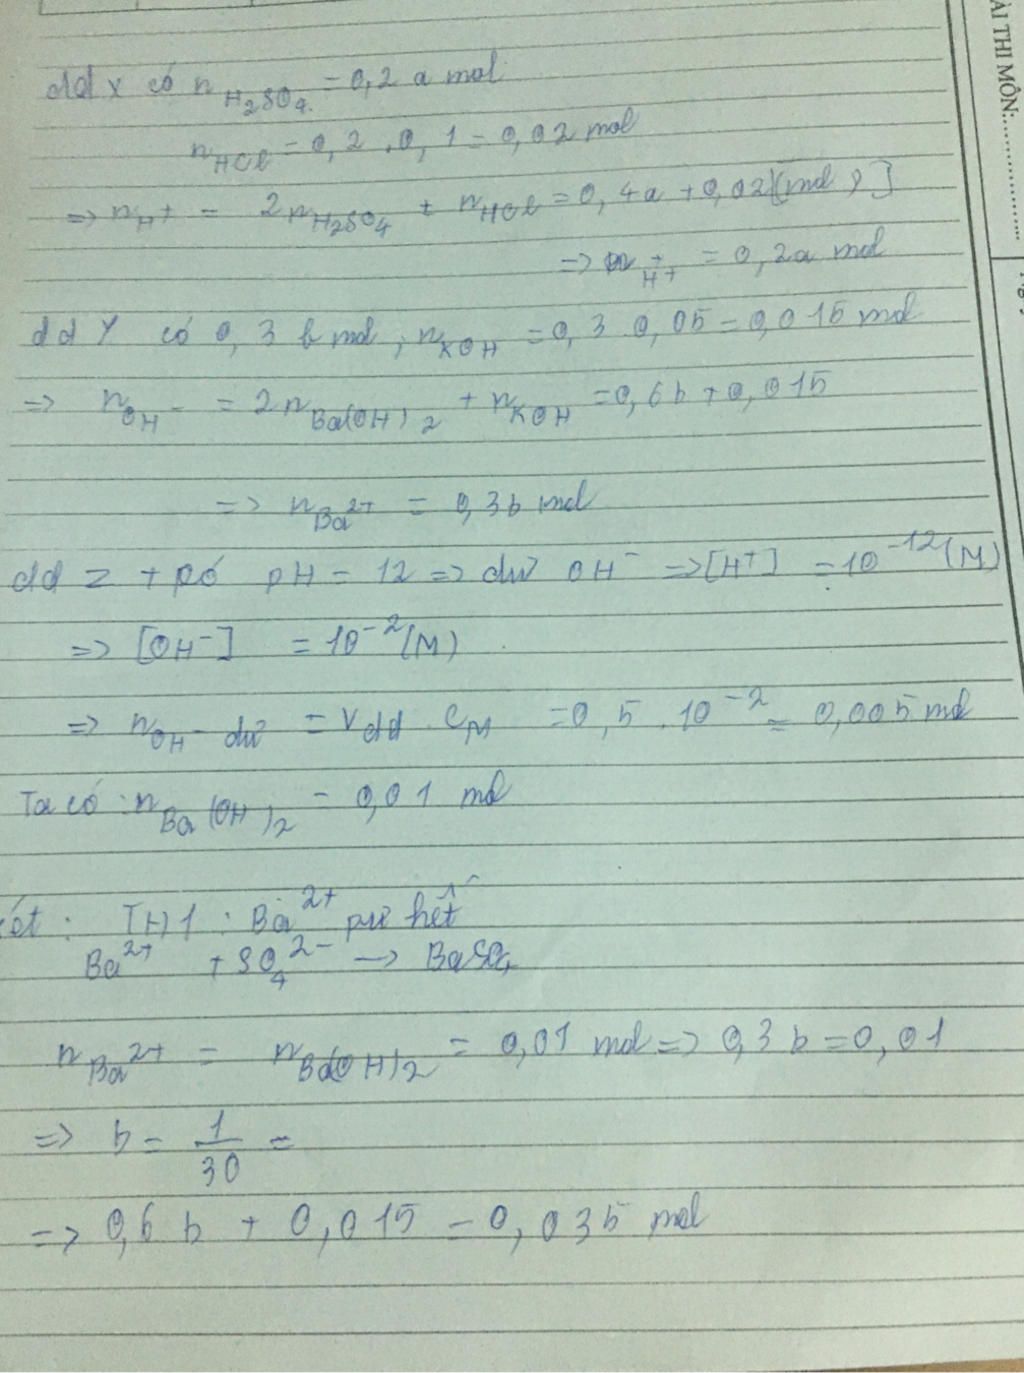 ÀI THI MÔN:
dd X có nH2SO4 = 0,2 a mol
nHCl = 0,2 . 0,1 = 0,02 mol
=> nH+ = 2nH2SO4 + nHCl = 0,4a + 0,02 (mol)]
=> H+ = 0,2a mol
dd Y có 0,3 b mol, nKOH = 0,3 0,05 = 0,015 mol
=> nOH- = 2nBa(OH)2 + nKOH = 0,6b + 0,015
=> nBa2+ = 0,3b mol
dd Z + có pH = 12 => dư OH- => [H+] = 10^-12 (M)
=> [OH-] = 10^-2 (M)
=> nOH- dư = Vdd . CM = 0,5 . 10^-2 = 0,005 mol
Ta có : nBa(OH)2 = 0,01 mol
ét : TH1 : Ba2+ pư hết
Ba2+ + SO4 2- -> BaSO4
nBa2+ = nBa(OH)2 = 0,01 mol => 0,3 b = 0,01
=> b = 1/30 =
=> 0,6 b + 0,015 = 0,035 mol